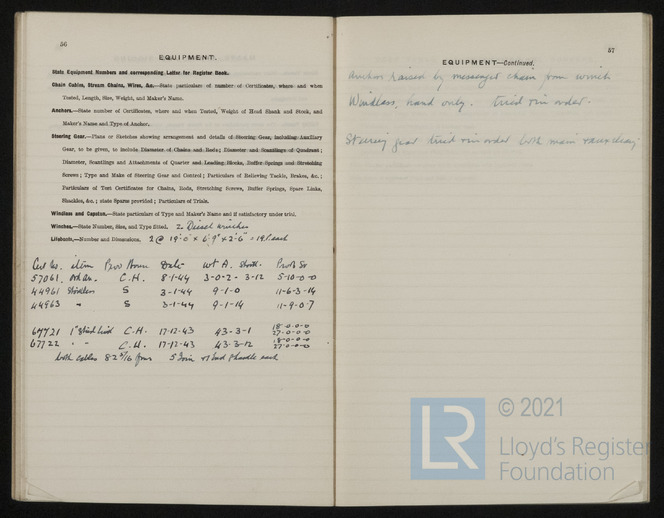 56
EQUIPMENT.
State Equipment Numbers and corresponding Letter for Register Book.
Chain Cables, Stream Chains, Wires, &c.—State particulars of number of Certificates, where and when
Tested, Length, Size, Weight, and Maker's Name.
Anchors.—State number of Certificates, where and when Tested, Weight of Head Shank and Stock, and
Maker's Name and Type of Anchor.
Steering Gear.—Plans or Sketches showing arrangement and details of Steering Gear, including Auxiliary
Gear, to be given, to include Diameter of Chains and Rods; Diameter and Scantlings of Quadrant;
Diameter, Scantlings and Attachments of Quarter and Leading Blocks, Buffer Springs and Stretching
Screws; Type and Make of Steering Gear and Control; Particulars of Relieving Tackle, Brakes, &c.;
Particulars of Test Certificates for Chains, Rods, Stretching Screws, Buffer Springs, Spare Links,
Shackles, &c.; state Spares provided; Particulars of Trials.
Windlass and Capstan.—State particulars of Type and Maker's Name and if satisfactory under trial.
Winches.—State Number, Size, and Type fitted. 2 Diesel winches
Lifeboats.—Number and Dimensions. 2 @ 19'·0" x 6'·9" x 2'·6"
Cert No. item Prov House Date wt A. Stock.
57061 C.H. 8-1-44 3-0-2 - 3-12 5-10-0-0
44961 Stockless S 3-1-44 9-1-0 11-6-3-14
44963 " S 3-1-44 9-1-14 11-9-0-7
67721 1" Stud Link C.H. 17-12-43 43-3-1 18-0-0-0
27-0-0-0
67722 " " C.H. 17-12-43 43-3-12 18-0-0-0
27-0-0-0
both cables 82 5/16 5 Join & End shackle each
57
EQUIPMENT—Continued.
Anchor raised by messenger chain from winch
Windlass, hand only. tried in order.
Steering gear tried in order both main & auxiliary
LR
© 2021
Lloyd's Register
Foundation